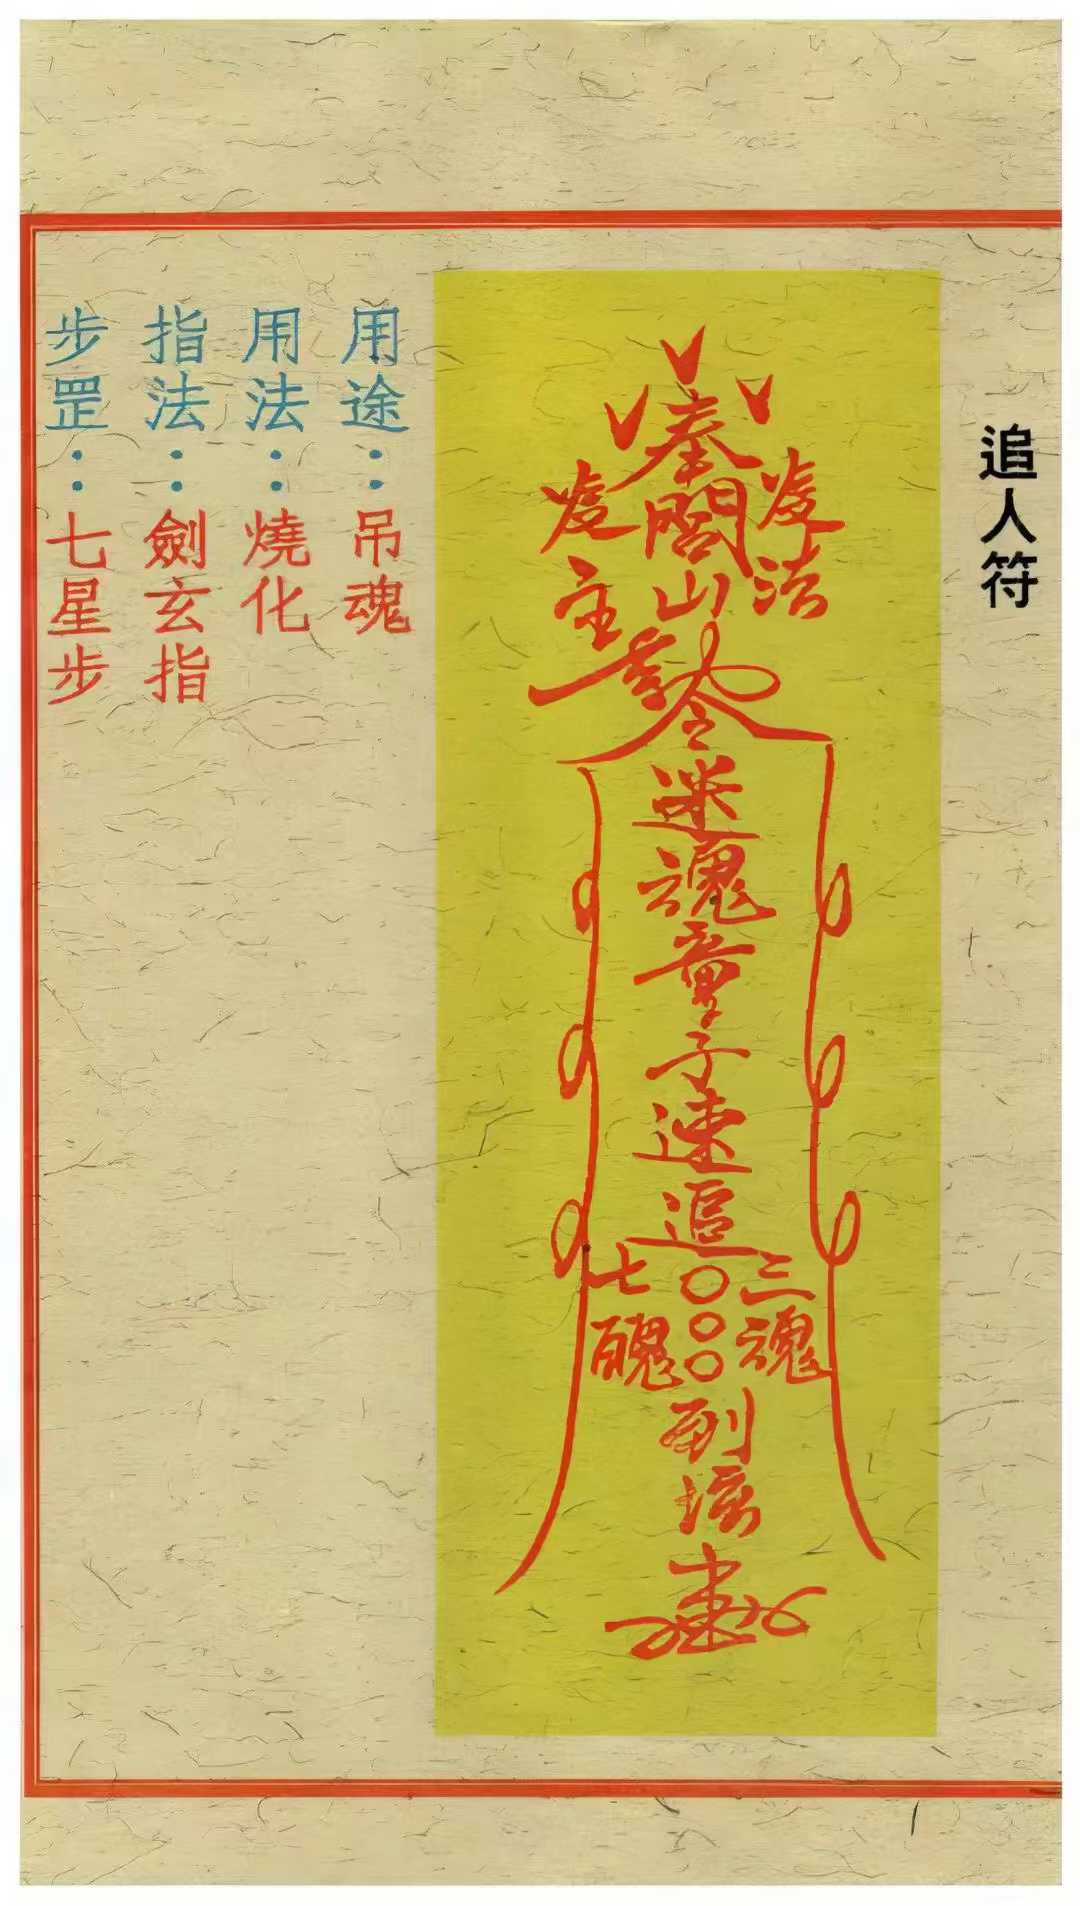 追人符
奉閭山勅令迷魂童子速追○○○到壇
法
主
三魂
七魄
用途：吊魂
用法：燒化
指法：劍玄指
步罡：七星步